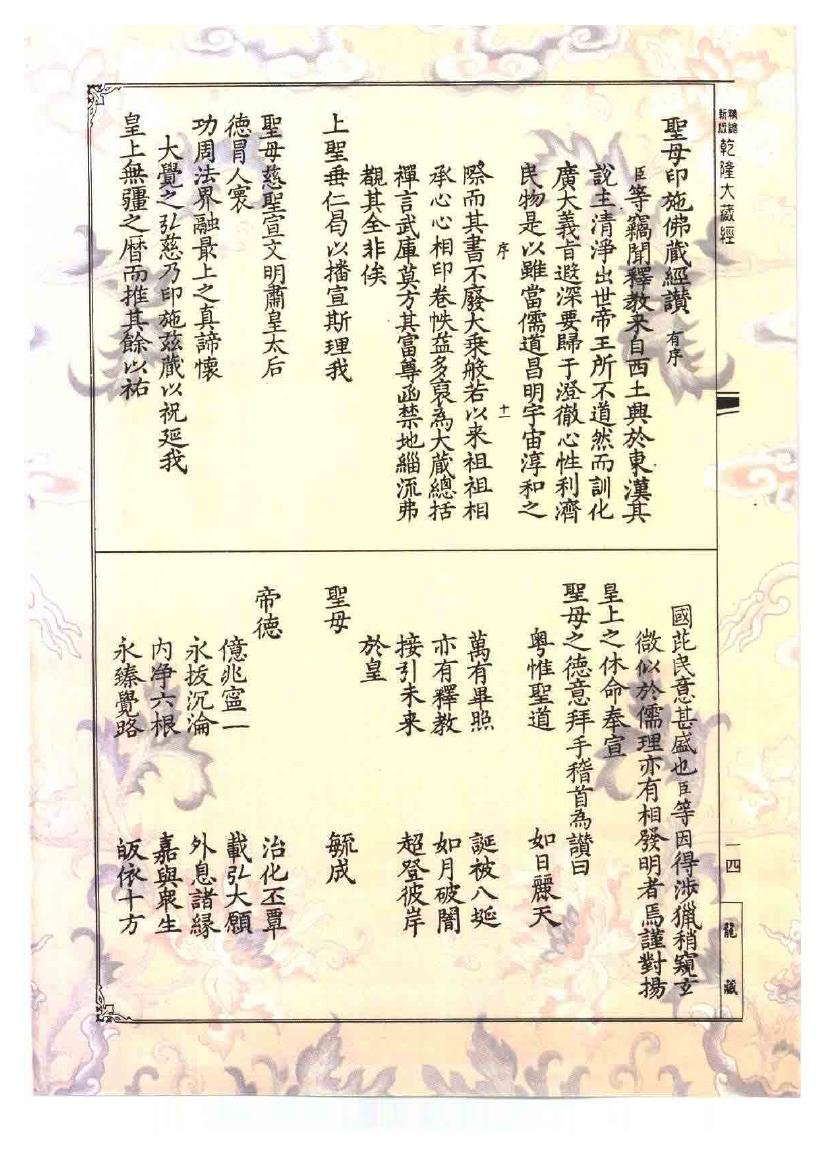 精縮新版 乾隆大藏經
聖母印施佛藏經讃 有序
臣等竊聞釋教来自西土興於東漢其
說主清淨出世帝王所不道然而訓化
廣大義㫖遐深要歸于澄徹心性利濟
民物是以雖當儒道昌明宇宙淳和之
序 十一
際而其書不廢大乗般若以来祖祖相
承心心相印卷帙益多裒為大藏總括
禪言武庫莫方其富尊函禁地緇流弗
覩其全非俟
上聖垂仁曷以播宣斯理我
聖母慈聖宣文明肅皇太后
德冒人寰
功周法界融最上之真諦懷
大覺之弘慈乃印施兹藏以祝延我
皇上無疆之曆而推其餘以祐
國芘民意甚盛也臣等因得涉獵稍窺玄
微似於儒理亦有相發明者焉謹對揚
皇上之休命奉宣
聖母之德意拜手稽首為讃曰
粤惟聖道 如日麗天
萬有畢照 誕被八埏
亦有釋教 如月破闇
接引未来 超登彼岸
於皇
聖母 毓成
帝德 治化丕覃
億兆寍一 載弘大願
永拔沉淪 外息諸縁
内净六根 嘉與衆生
永臻覺路 皈依十方
一四
龍藏